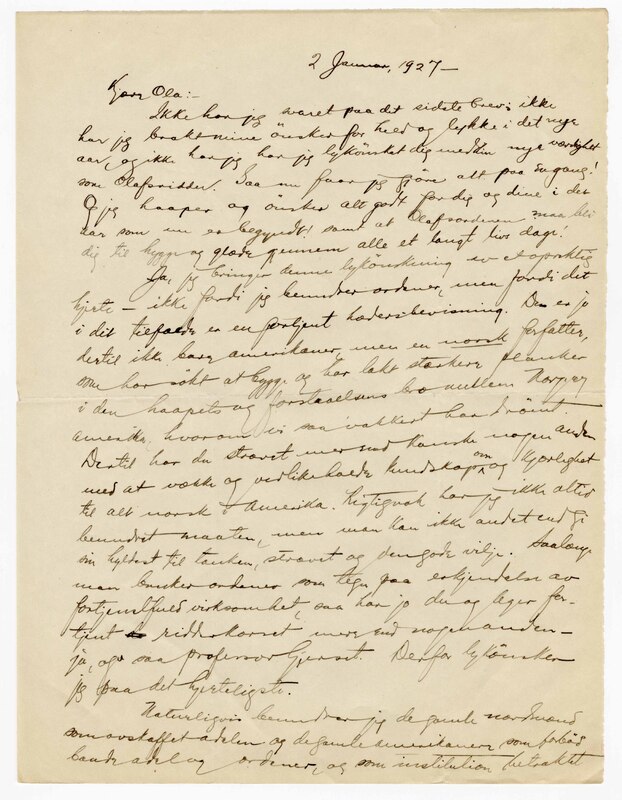 2 Januar, 1927 —
Kjære Ola:-
Ikke har jeg svaret paa dit sidste brev; ikke
har jeg bragt mine ønsker for held og lykke i det nye
aar, og ikke har jeg har jeg lykønsket dig med din nye værdighet
som Olafsridder. Saa nu faar jeg gjøre alt paa en gang!
Og jeg haaper og ønsker alt godt for dig og dine i det
aar som nu er begyndt! samt at Olafsordenen maa bli
dig til hygge og glæde gjennem alle et langt livs dage!
Ja, jeg bringer denne lykønskning av et oprigtig
hjerte — ikke fordi jeg beundrer ordener, men fordi det
i dit tilfælde er en fortjent hædersbevisning. Du er jo
dertil ikke bare amerikaner, men en norsk forfatter,
som har søkt at bygge og har lakt stærkere planker
i den haapets og forstaaelsens bro mellem Norge og
Amerika, hvorom vi saa vakkert har drømt.
Dertil har du strævet mer end kanske nogen anden
med at vække og vedlikeholde kundskap om og kjærlighet
til alt norsk i Amerika. Rigtignok har jeg ikke altid
beundret maaten, men man kan ikke andet end gi
sin hyldest til tanken, strævet og den gode vilje. Saalænge
man bruker ordener som tegn paa erkjendelse av
fortjenstfuld virksomhet, saa har jo du og Leger for-
tjent ridderkorset mere end nogen anden —
ja, ogsaa professor Gjerset. Derfor lykønsker
jeg paa det hjerteligste.
Naturligvis beundrer jeg de gamle nordmænd
som avskaffet adelen og de gamle amerikanere som forbød
baade adel og ordener, og som institution betraktet